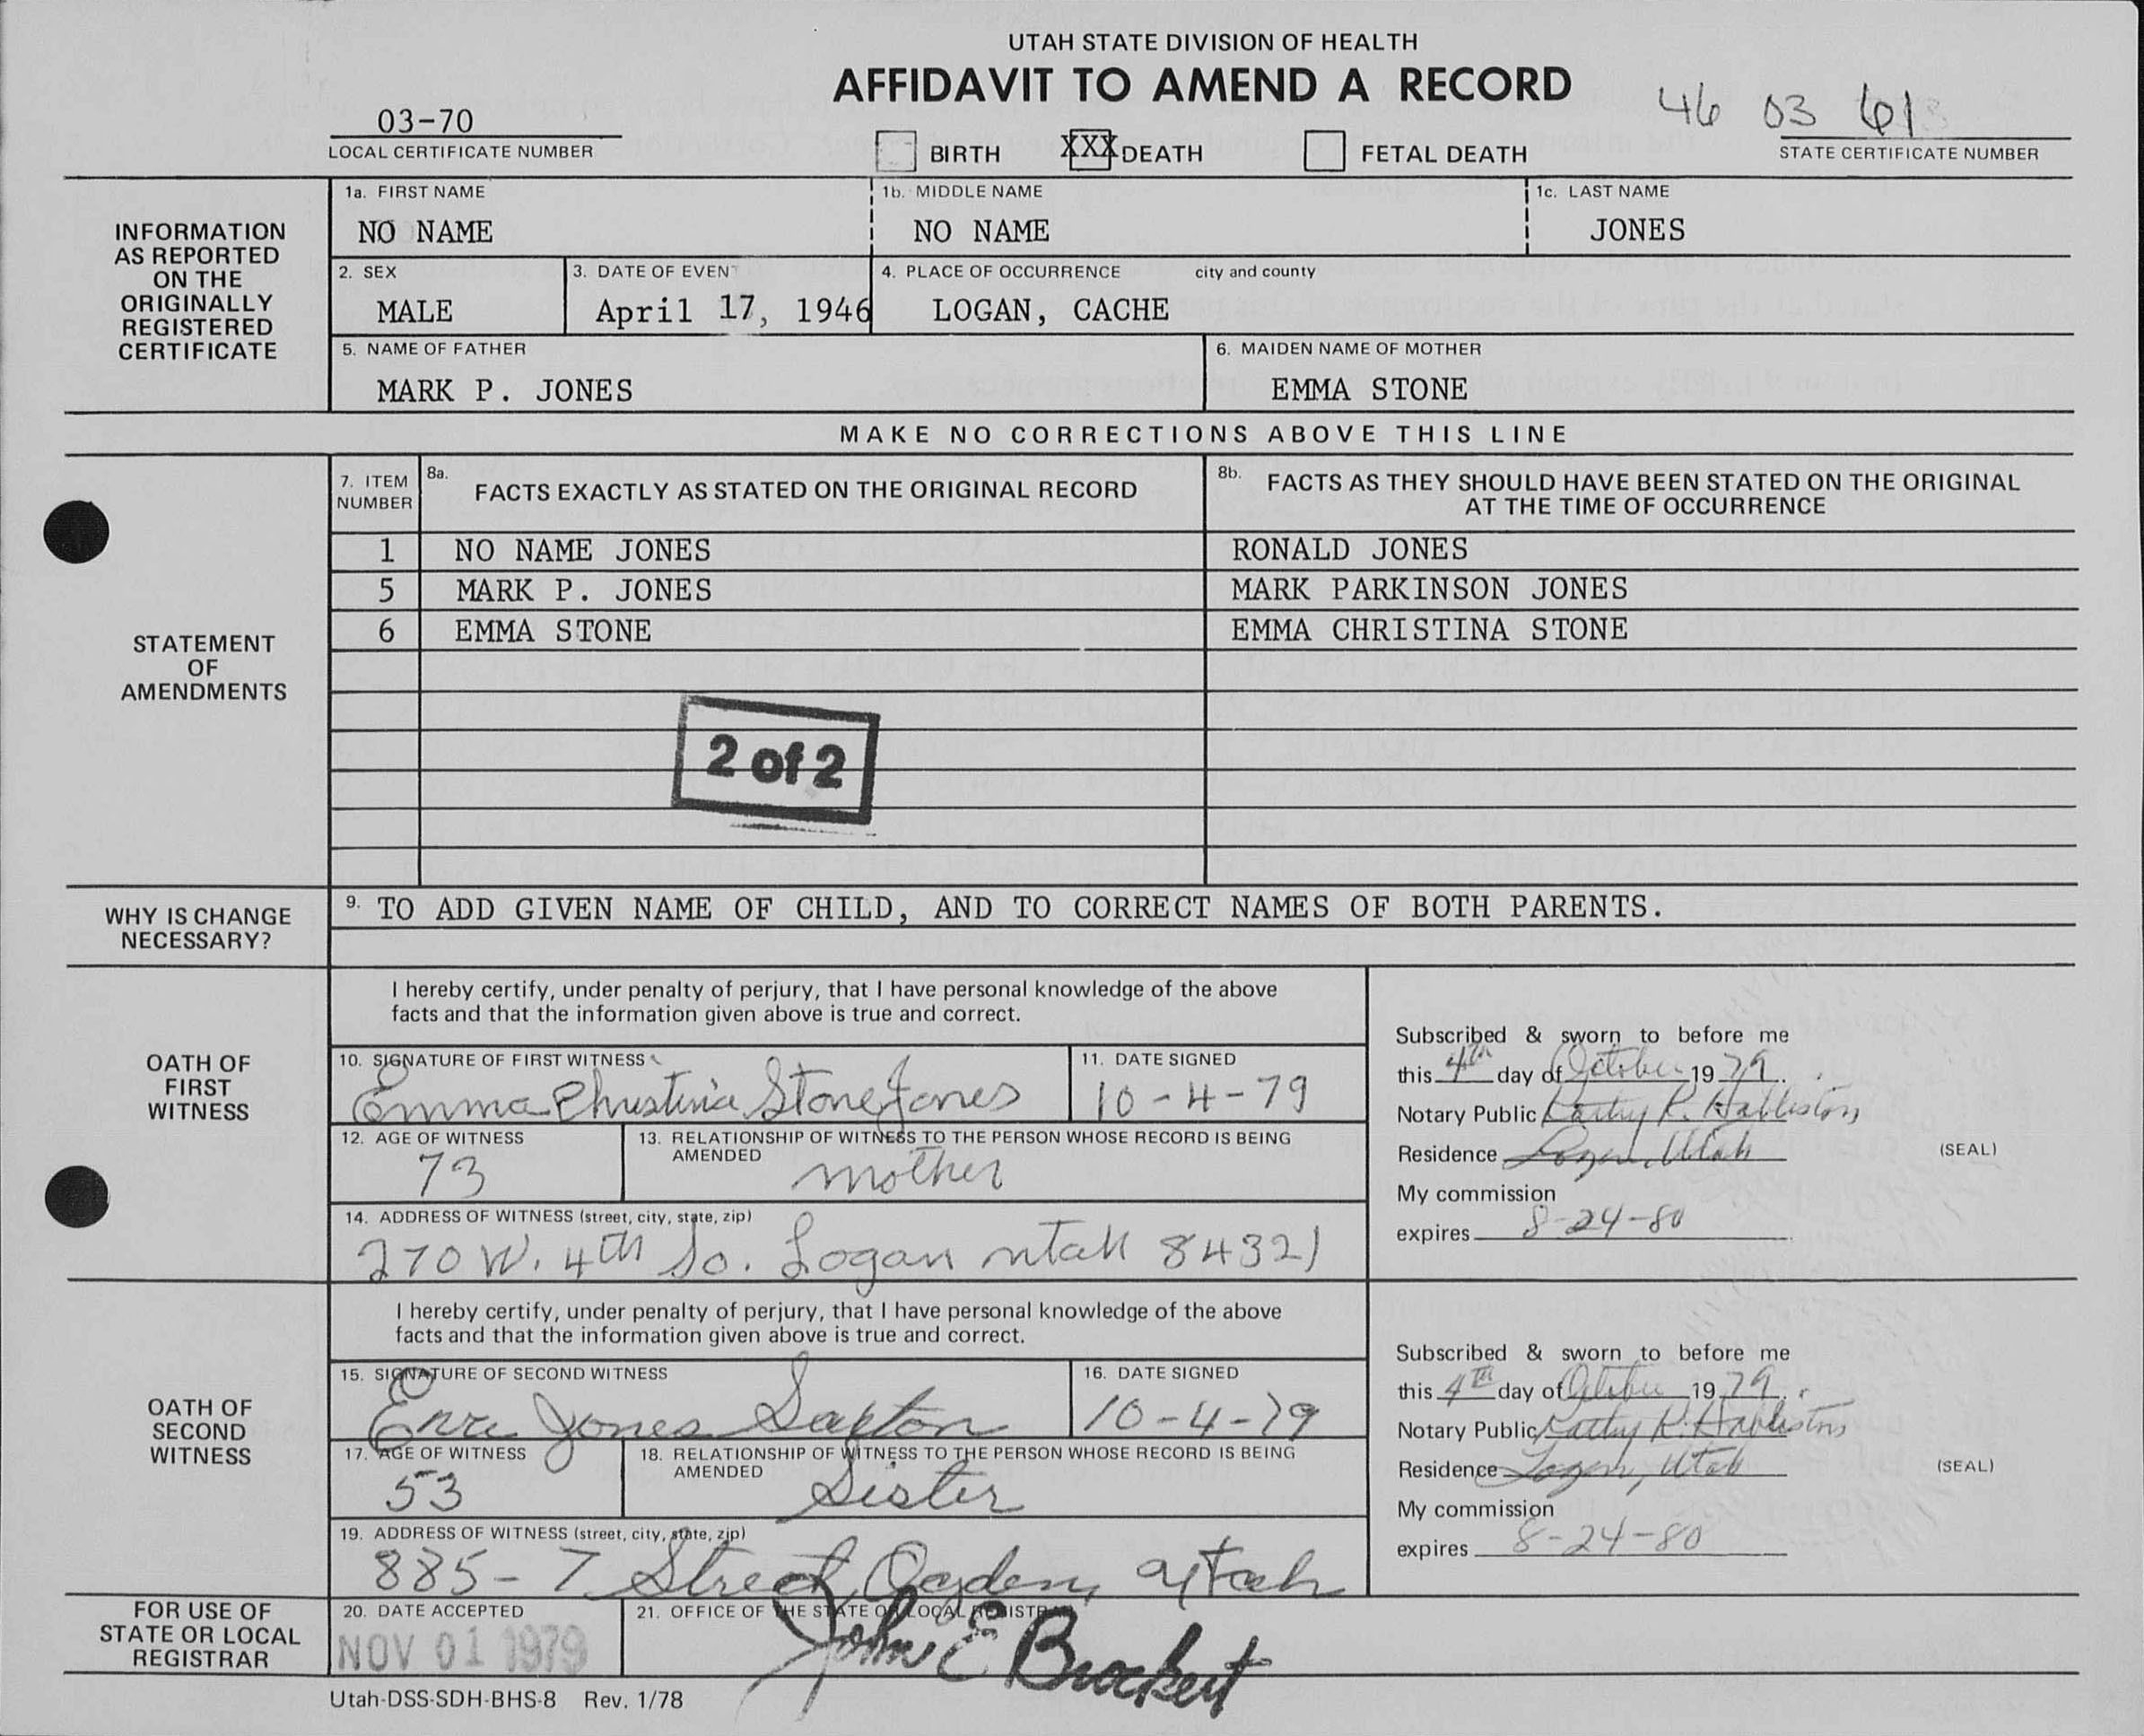 UTAH STATE DIVISION OF HEALTH
AFFIDAVIT TO AMEND A RECORD
03-70
46 03 61
LOCAL CERTIFICATE NUMBER
BIRTH XXX DEATH FETAL DEATH
STATE CERTIFICATE NUMBER
INFORMATION AS REPORTED ON THE ORIGINALLY REGISTERED CERTIFICATE
1a. FIRST NAME 1b. MIDDLE NAME 1c. LAST NAME
NO NAME NO NAME JONES
2. SEX 3. DATE OF EVENT 4. PLACE OF OCCURRENCE city and county
MALE April 17, 1946 LOGAN, CACHE
5. NAME OF FATHER 6. MAIDEN NAME OF MOTHER
MARK P. JONES EMMA STONE
MAKE NO CORRECTIONS ABOVE THIS LINE
STATEMENT OF AMENDMENTS
7. ITEM NUMBER
8a. FACTS EXACTLY AS STATED ON THE ORIGINAL RECORD
8b. FACTS AS THEY SHOULD HAVE BEEN STATED ON THE ORIGINAL
AT THE TIME OF OCCURRENCE
1 NO NAME JONES RONALD JONES
5 MARK P. JONES MARK PARKINSON JONES
6 EMMA STONE EMMA CHRISTINA STONE
2 of 2
WHY IS CHANGE NECESSARY?
9. TO ADD GIVEN NAME OF CHILD, AND TO CORRECT NAMES OF BOTH PARENTS.
OATH OF FIRST WITNESS
I hereby certify, under penalty of perjury, that I have personal knowledge of the above
facts and that the information given above is true and correct.
10. SIGNATURE OF FIRST WITNESS 11. DATE SIGNED
Emma Christina Stone Jones 10-4-79
12. AGE OF WITNESS 13. RELATIONSHIP OF WITNESS TO THE PERSON WHOSE RECORD IS BEING
AMENDED
73 mother
14. ADDRESS OF WITNESS (street, city, state, zip)
270 W. 4th So. Logan utah 84321
Subscribed & sworn to before me
this 4th day of October 19 79
Notary Public Kathy R.
Residence Logan, Utah
(SEAL)
My commission
expires 8-24-80
OATH OF SECOND WITNESS
I hereby certify, under penalty of perjury, that I have personal knowledge of the above
facts and that the information given above is true and correct.
15. SIGNATURE OF SECOND WITNESS 16. DATE SIGNED
Jones Saxton 10-4-79
17. AGE OF WITNESS 18. RELATIONSHIP OF WITNESS TO THE PERSON WHOSE RECORD IS BEING
AMENDED
53 Sister
19. ADDRESS OF WITNESS (street, city, state, zip)
885-7 Street, Ogden, Utah
Subscribed & sworn to before me
this 4th day of October 19 79
Notary Public Kathy R.
Residence Logan, Utah
(SEAL)
My commission
expires 8-24-80
FOR USE OF STATE OR LOCAL REGISTRAR
20. DATE ACCEPTED 21. OFFICE OF THE STATE OR LOCAL REGISTRAR
NOV 01 1979 John E Brockert
Utah-DSS-SDH-BHS-8 Rev. 1/78